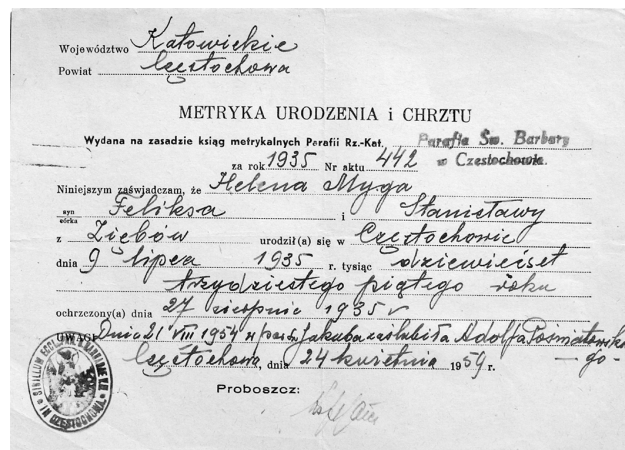 Województwo Katowickie
Powiat Częstochowa
METRYKA URODZENIA i CHRZTU
Wydana na zasadzie ksiąg metrykalnych Parafii Rz.-Kat. Parafia Św. Barbary
w Częstochowie.
za rok 1935 Nr aktu 442
Niniejszym zaświadczam, że Helena Myga
syn
córka Feliksa i Stanisławy
z Ziębów urodził(a) się w Częstochowie
dnia 9 lipca 1935 r. tysiąc dziewięćset
trzydziestego piątego roku
ochrzczony(a) dnia 27 sierpnia 1935 r
UWAGI Dnia 21 VIII 1954 w par. św. Jakuba zaślubiła Adolfa
- go -
Częstochowa, dnia 24 kwietnia 1959 r.
Proboszcz:
SIGILLUM IN CZĘSTOCHOWA